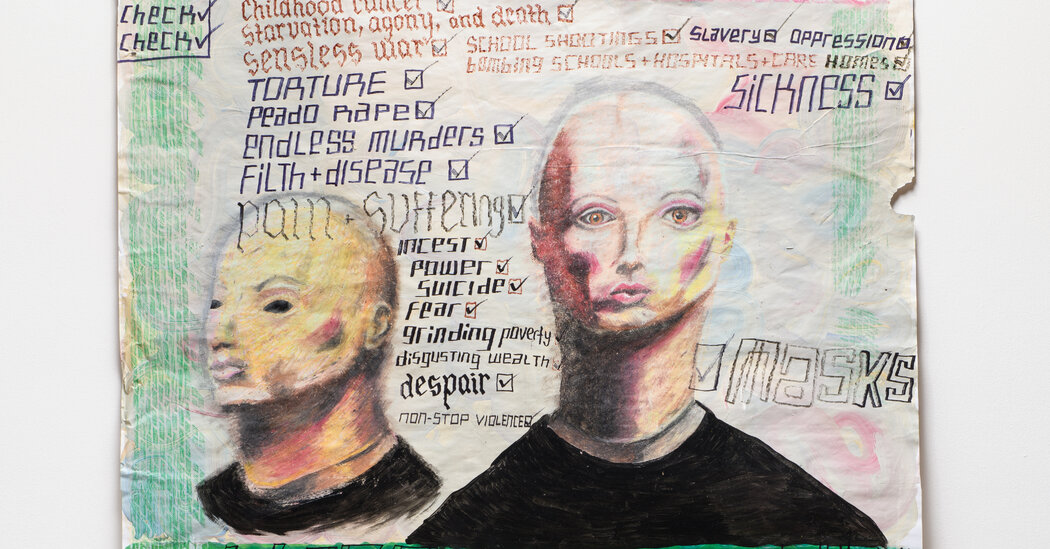 check✓
check✓
Childhood cancer ☑
starvation, agony, and death ☑
sensless war ☑
SCHOOL SHOOTINGS ☑ slavery ☑ oppression ☑
bombing SCHOOLS + HOSPITALS + CARE HOMES ☑
TORTURE ☑
SICKNESS ☑
PEADO RAPE ☑
endless murders ☑
Filth + disease ☑
pain + suffering ☑
INCEST ☑
POWER ☑
SUICIDE ☑
fear ☑
grinding poverty ☑
disgusting wealth ☑
despair ☑
☑ masks
NON-STOP VIOLENCE ☑